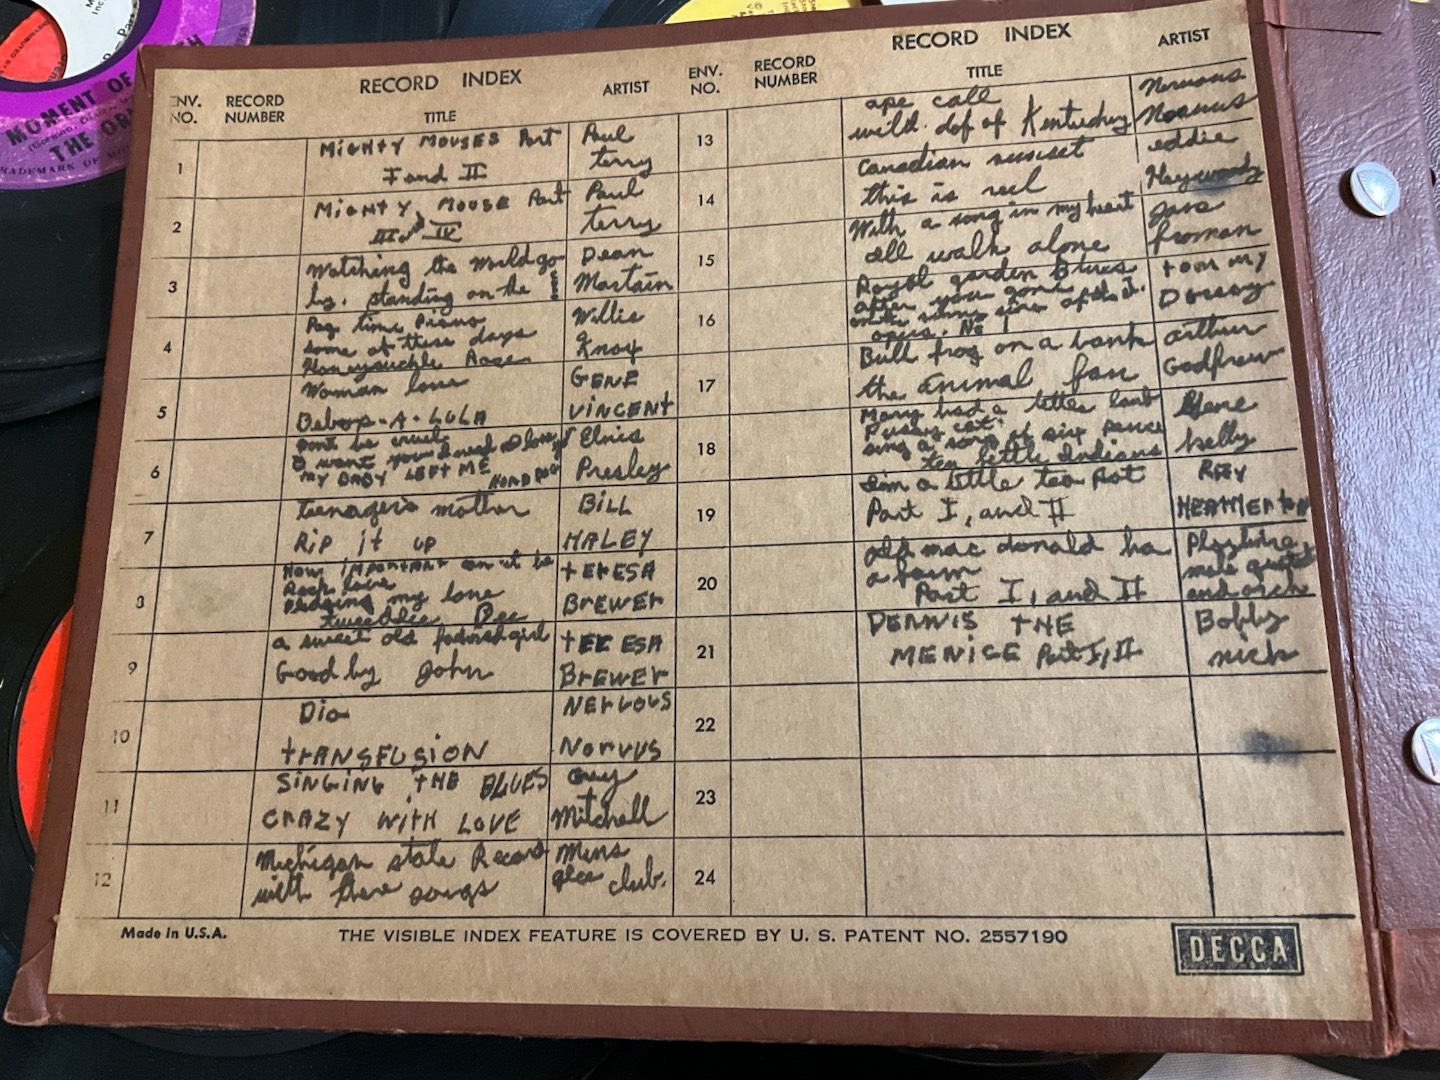 MOMENT OF
THE OR
RECORD INDEX
ENV. NO.
RECORD NUMBER
TITLE
ARTIST
1
MIGHTY MOUSES Part
I and II
Paul
terry
2
MIGHTY MOUSE Part
III and IV
Paul
terry
3
Watching the world go
by. standing on the
Dean
Martain
4
Rag time Piano
some of these days
Honeysuckle Rose
Willie
Knox
5
Woman love
Bebop-A-LULA
GENE
VINCENT
6
Dont be cruel
I want you I need I love
MY BABY LEFT ME
HOND DOG
Elvis
Presley
7
teenager's mother
Rip it up
BILL
HALEY
8
How IMPORTANT can it be
Rock love
Pledging my love
tweedlee Dee
tERESA
BREWER
9
a sweet old fashond girl
Good by John
tERESA
BREWER
10
Dig
tRANSFUSION
NERVOUS
Norvus
11
SINGING THE BLUES
CRAZY WITH LOVE
Guy
Mitchell
12
Michigan state Record
with three songs
Mens
glee club.
RECORD INDEX
ENV. NO.
RECORD NUMBER
TITLE
ARTIST
13
ape call
wild dof of Kentuckey
Nervous
Noarvus
14
Canadian sunset
this is reel
eddie
Haywoody
15
With a song in my heart
ill walk alone
Jane
froman
16
Royal garden Blues
after you gone
opus. No 1
tommy
Dorsey
17
Bull frog on a bank
the animal fan
arthur
Godfrew
18
Mary had a little lamb
Pussy cat.
sing a song of six pence
ten little Indians
Gene
kelly
19
I'm a little tea Pot
Part I, and II
Ray
HEATHERTON
20
old mac donald ha
a farm
Part I, and II
Playtime
male quartet
and orch
21
DENNIS THE
MENICE Part I, II
Bobby
nick
22
23
24
Made in U.S.A.
THE VISIBLE INDEX FEATURE IS COVERED BY U. S. PATENT NO. 2557190
DECCA